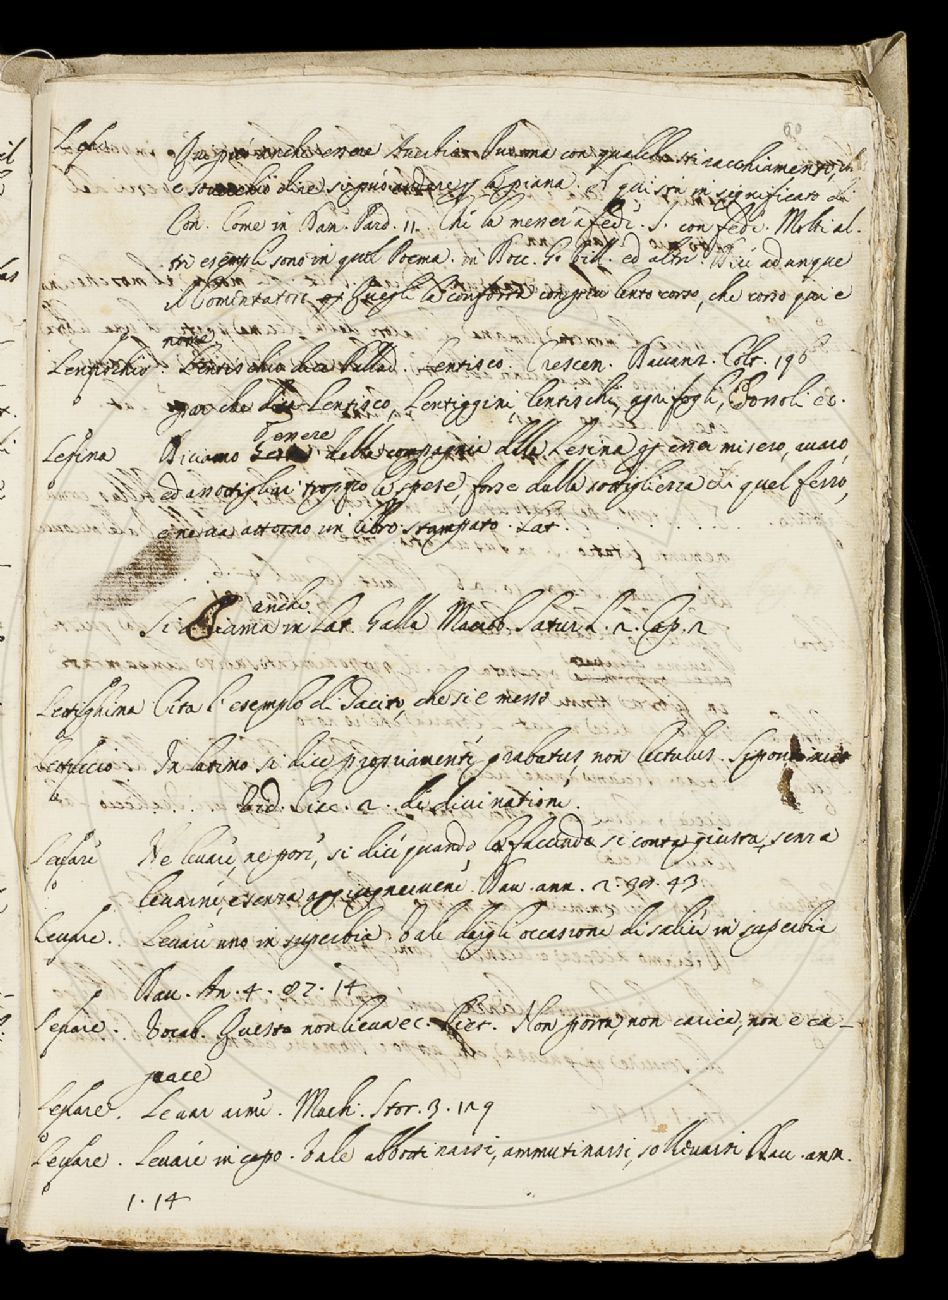 60
In pié anche essere Avverbio. Ruinna con qualche stiracchiamento, ch
e sarebbe dire si può andare p la piana. e qui sta in significato di
Con. Come in Dan. Par. 11. Chi la mener a fedi. S. con fedi. Molti al-
tri esempli sono in quel Poema. in Bocc. ed altri. Dici adunque
il Comentatore Quegli la conforta con più lento corso, che corso qui è
nome
Lentischio Lentischio dice Pallad. Lentisco. Crescen. Davanz. Colt. 196
par che dica Lentisco, Lentiggini, lentischi, agrifogli, Corvoli ec.
Lesina Diciamo Essere della compagnia della Lesina p esser misero, avaro,
ed assottigliar troppo le spese, forse dalla sottigliezza di quel ferro,
e ne va attorno un libro stampato. Lat. . . . .
Si chiama anche in Lat. Galla Macrob. Satur. L. 2. Cap. 2
Lettighina Cita l'esempio di Tacito, che si è messo
Lettuccio In latino si dice propriamente grabatus, non lectulus.
Cic. 2. de divinatione.
Levare Ne levare, ne porre, si dice quando la faccenda si conta giusta, senza
levarne, e senza aggiugnervene. Dav. ann. 2. 39. 43
Levare. Levare uno in superbia. Vale dargli occasione di salire in superbia
Dav. An. 4. 87. 14
Levare. Vocab. Questa non lieva ec. Non porta, non carica, non è ca-
pace
Levare. Levar arme. Mach. Stor. 3. 129
Levare. Levare in capo. Vale abbottinarsi, ammutinarsi, sollevarsi Dav. ann.
1. 14